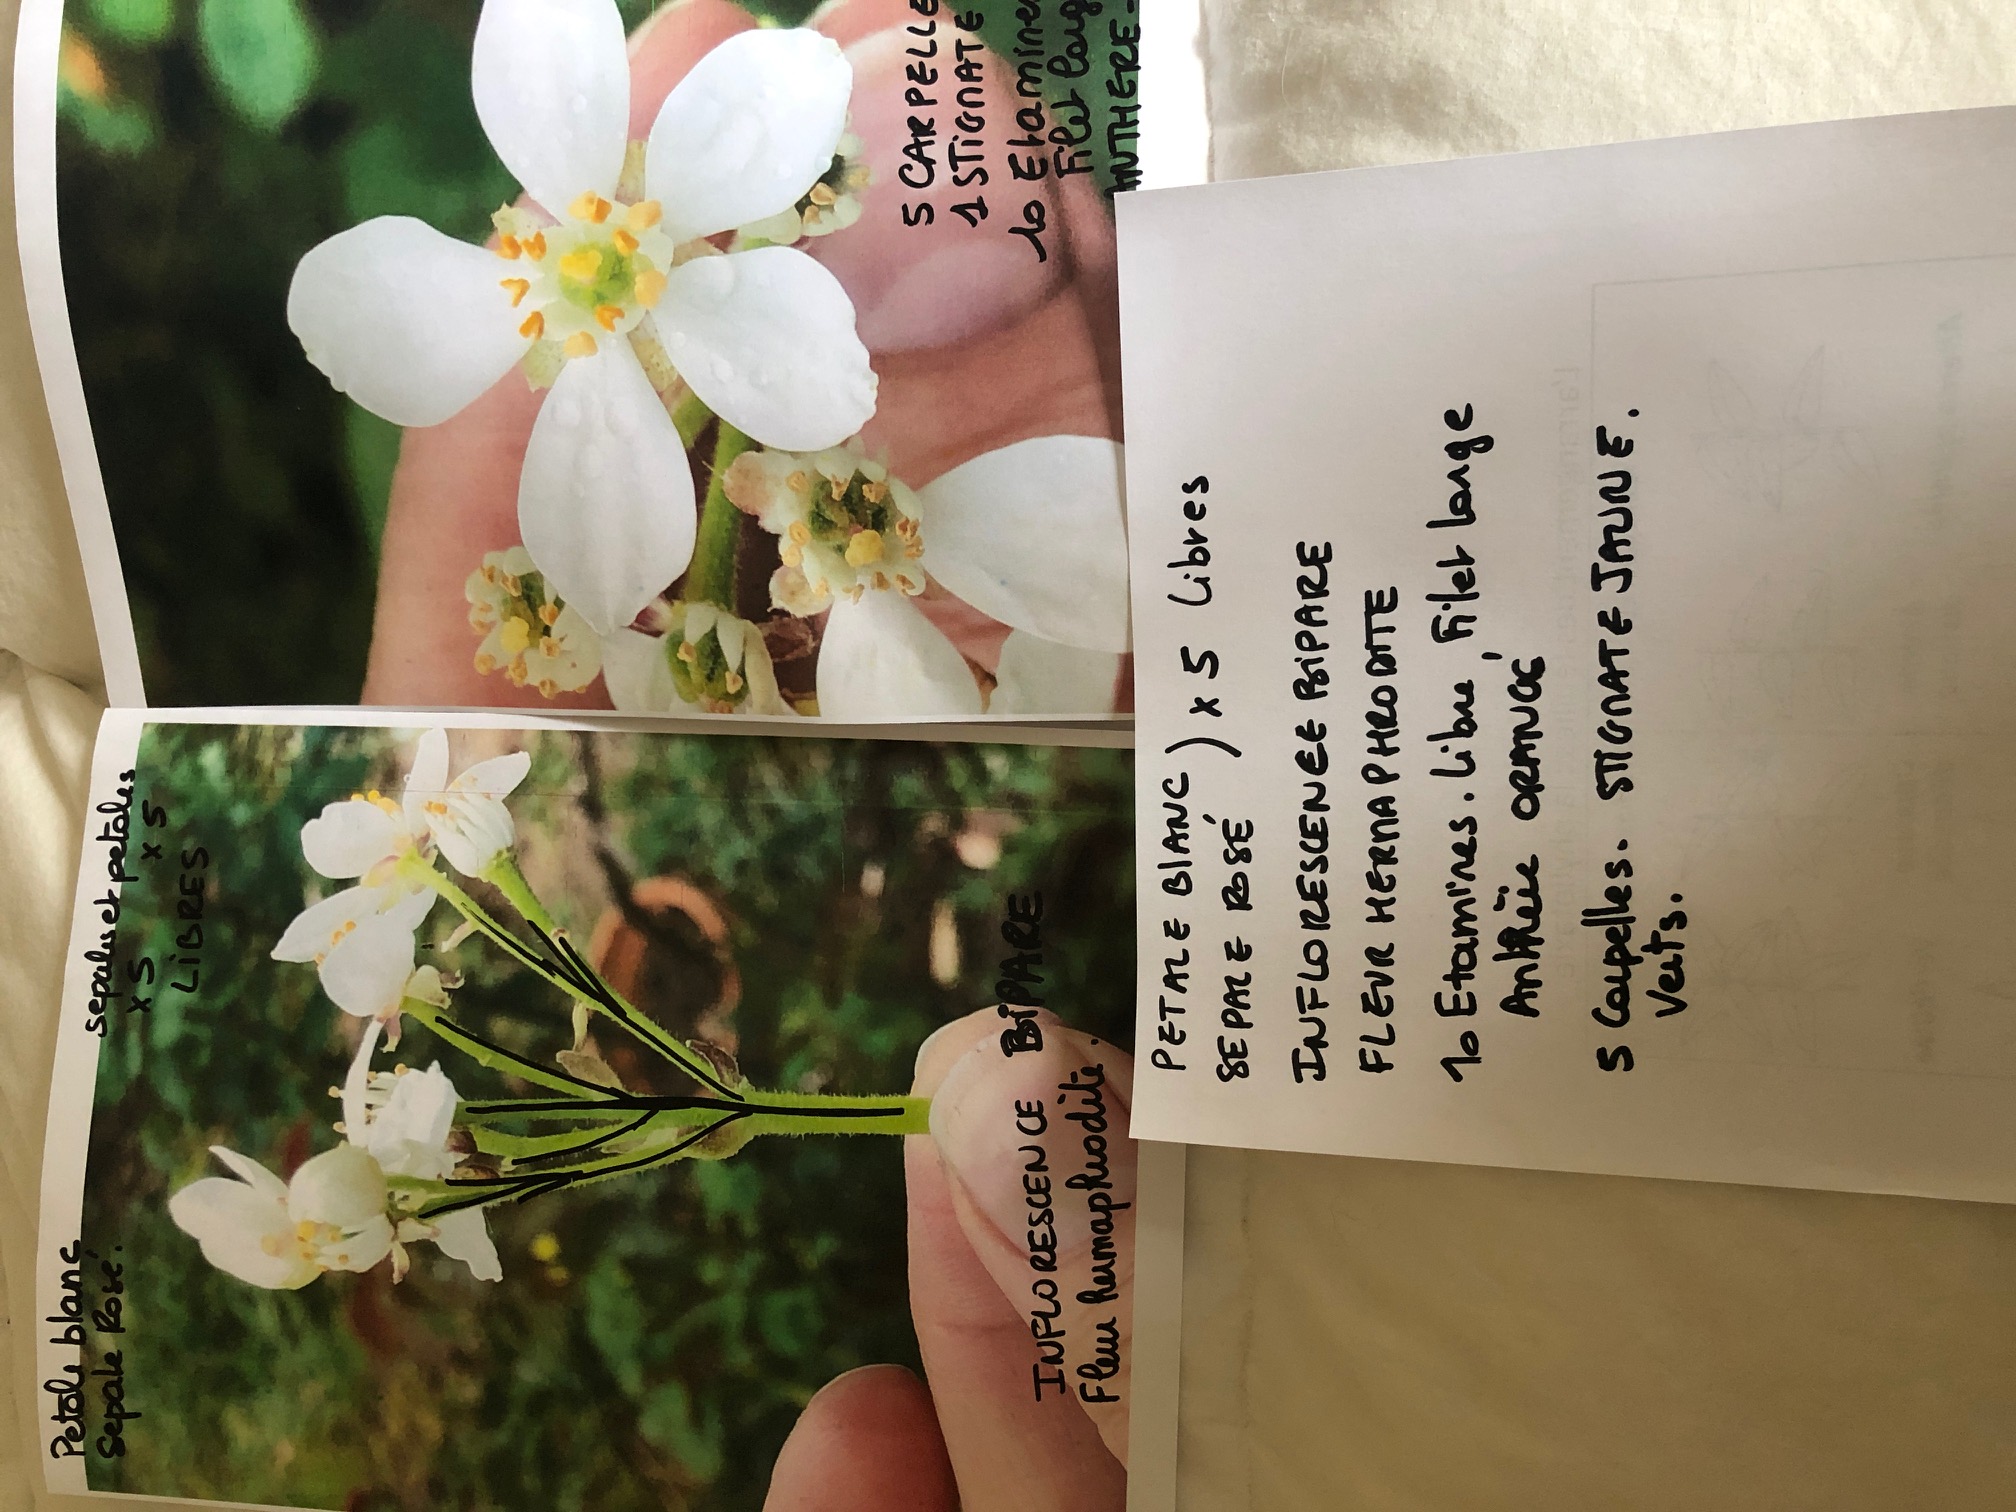 Petale blanc
Sepale Rosé.
sepales et petales
x5 x5
LIBRES
INFLORESCENCE BIPARE
Fleur hermaphrodite.
5 CARPELLE
1 STIGMATE
10 Etamines
Filet larg
ANTHERE -
PETALE BLANC ) x 5 Libres
SEPALE ROSÉ
INFLORESCENEE BIPARE
FLEUR HERMAPHRODITE
10 Etamines. Libre, Filet large
ORANGE
5 Carpelles. STIGMATE JAUNE.
Verts.